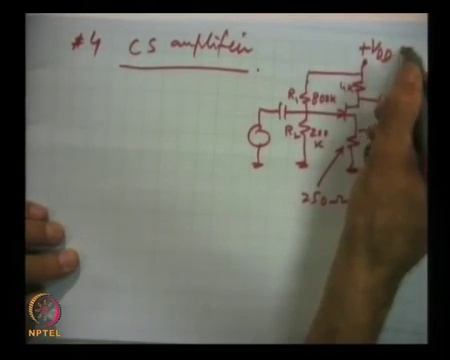 #4 CS amplifier
+VDD
4K
R1 800K
R2 200
K
250Ω
NPTEL